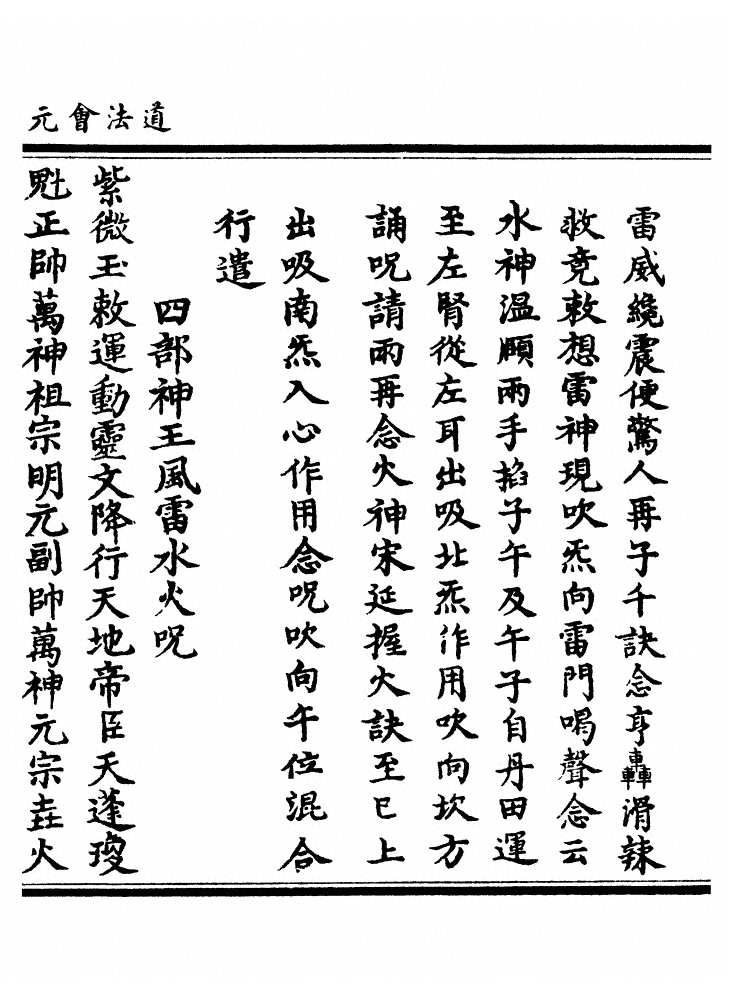 道法會元
雷威纔震便驚人再子千訣念亨轟滑辣
救竟敕想雷神現吹炁向雷門喝聲念云
水神溫願兩手掐子午及午子自丹田運
至左腎從左耳出吸北炁作用吹向坎方
誦呪請雨再念火神宋延握火訣至巳上
出吸南炁入心作用念呪吹向午位混合
行遣
四部神王風雷水火呪
紫微玉敕運動靈文降行天地帝臣天蓬
魁正帥萬神祖宗明元副帥萬神元宗火